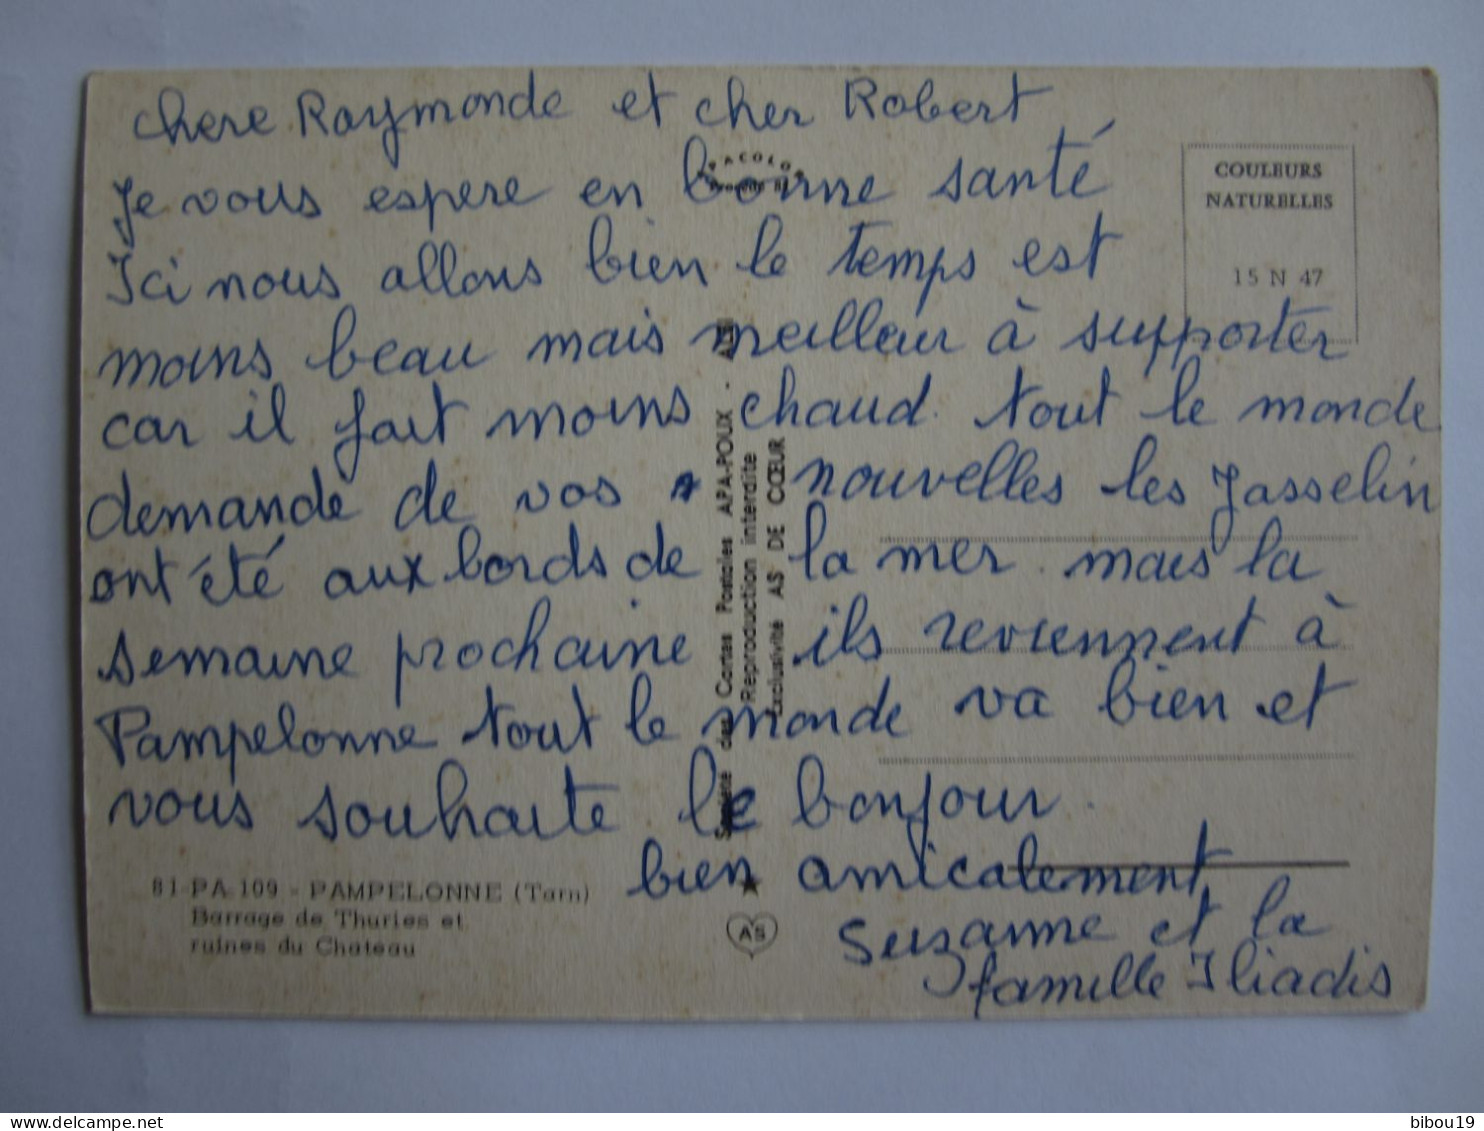 chere Raymonde et cher Robert
Je vous espere en bonne santé
Ici nous allons bien le temps est
moins beau mais meilleur à supporter
car il fait moins chaud. tout le monde
demande de vos nouvelles les Jasselin
ont été aux bords de la mer. mais la
semaine prochaine ils reviennent à
Pampelonne tout le monde va bien et
vous souhaite le bonjour.
bien amicalement
Suzanne et la
famille Iliadis
COULEURS
NATURELLES
15 N 47
des Cartes Postales APA-POUX - ALBI
Reproduction interdite
Exclusivité AS DE CŒUR
81-PA 109 - PAMPELONNE (Tarn)
Barrage de Thuries et
ruines du Chateau
AS
delcampe.net
bibou19